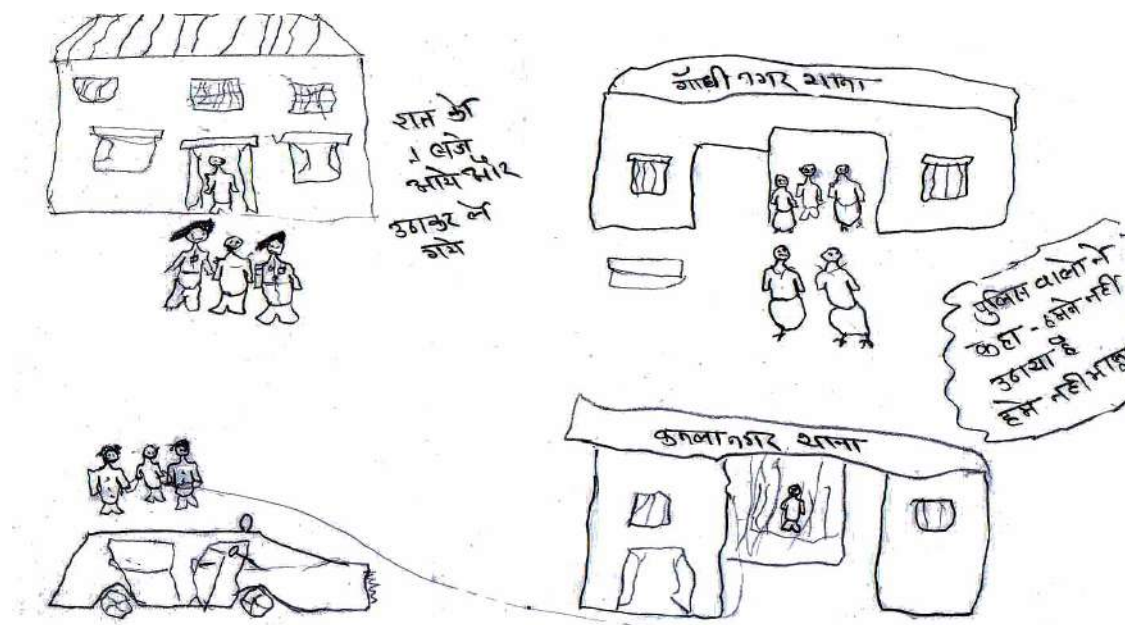 रात को
1 बजे
आये और
उठाकर ले
गये
गाँधी नगर थाना
पुलिस वालो ने
कहा - हमने नही
उठाया है
हमे नही मालू
कमला नगर थाना